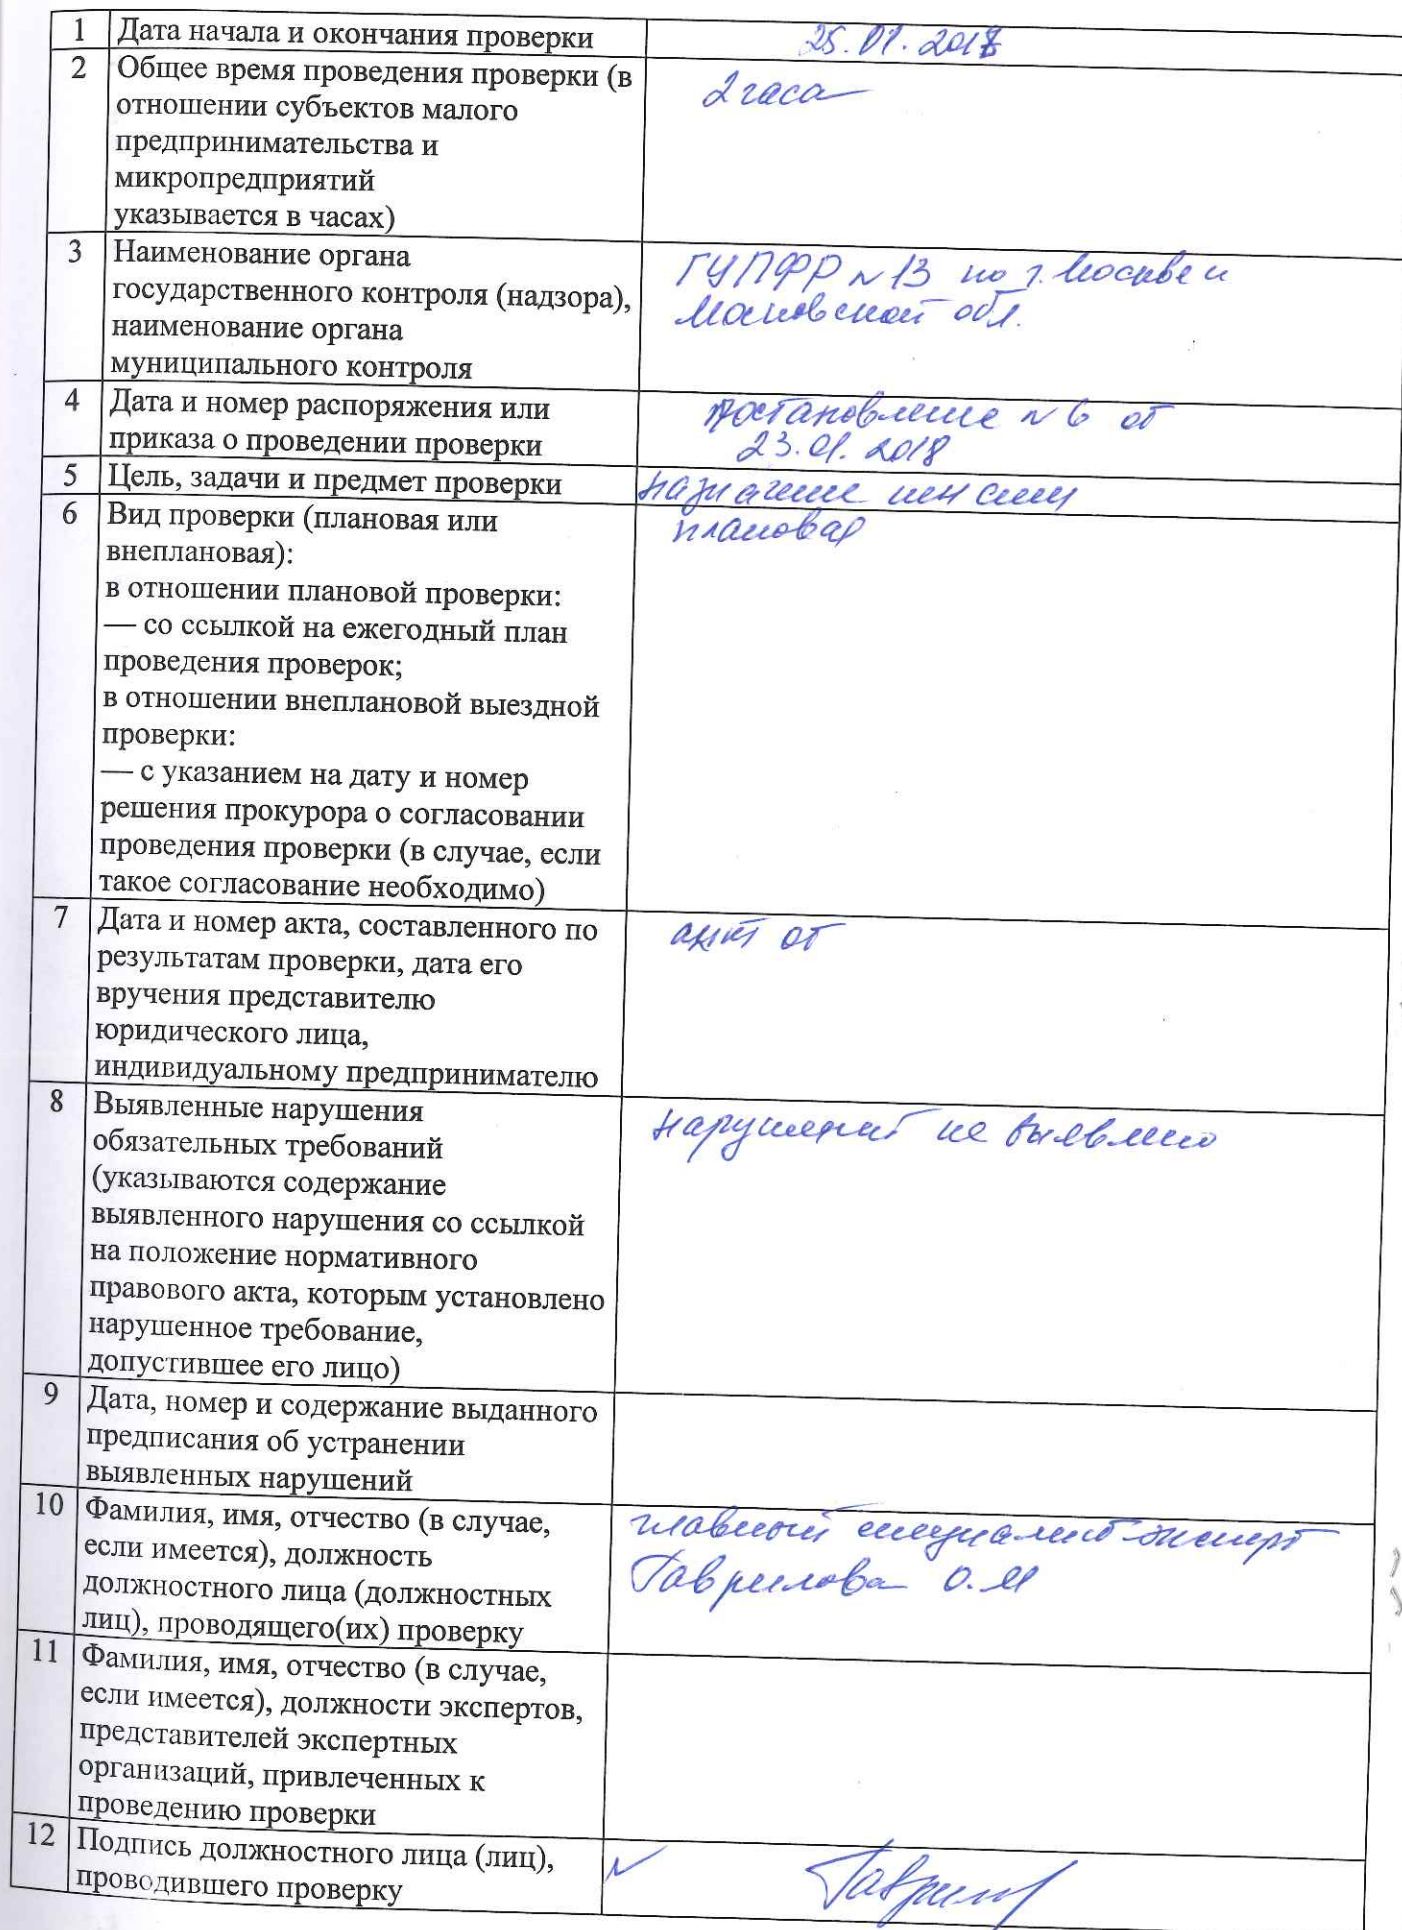 1 Дата начала и окончания проверки 25.01.2018
2 Общее время проведения проверки (в 2 часа
отношении субъектов малого
предпринимательства и
микропредприятий
указывается в часах)
3 Наименование органа ГУПФР №13 по г. Москве и
государственного контроля (надзора), Московской обл.
наименование органа
муниципального контроля
4 Дата и номер распоряжения или постановление №6 от
приказа о проведении проверки 23.01.2018
5 Цель, задачи и предмет проверки назначение пенсии
6 Вид проверки (плановая или плановая
внеплановая):
в отношении плановой проверки:
— со ссылкой на ежегодный план
проведения проверок;
в отношении внеплановой выездной
проверки:
— с указанием на дату и номер
решения прокурора о согласовании
проведения проверки (в случае, если
такое согласование необходимо)
7 Дата и номер акта, составленного по акт от
результатам проверки, дата его
вручения представителю
юридического лица,
индивидуальному предпринимателю
8 Выявленные нарушения нарушений не выявлено
обязательных требований
(указываются содержание
выявленного нарушения со ссылкой
на положение нормативного
правового акта, которым установлено
нарушенное требование,
допустившее его лицо)
9 Дата, номер и содержание выданного
предписания об устранении
выявленных нарушений
10 Фамилия, имя, отчество (в случае, главный специалист-эксперт
если имеется), должность Гаврилова О.М
должностного лица (должностных
лиц), проводящего(их) проверку
11 Фамилия, имя, отчество (в случае,
если имеется), должности экспертов,
представителей экспертных
организаций, привлеченных к
проведению проверки
12 Подпись должностного лица (лиц),
проводившего проверку